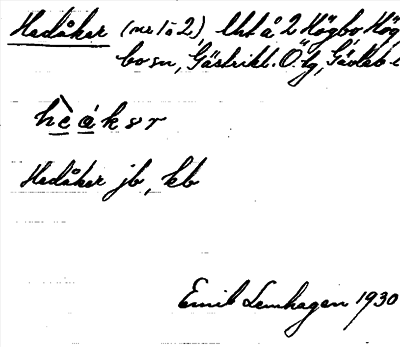 Hedåker (nr 1 o 2), lht å 2 Högbo, Hög
bo sn, Gästrikl. Ö. tg, Gävleb l
hèákər
Hedåker jb, kb
Emil Lemhagen 1930